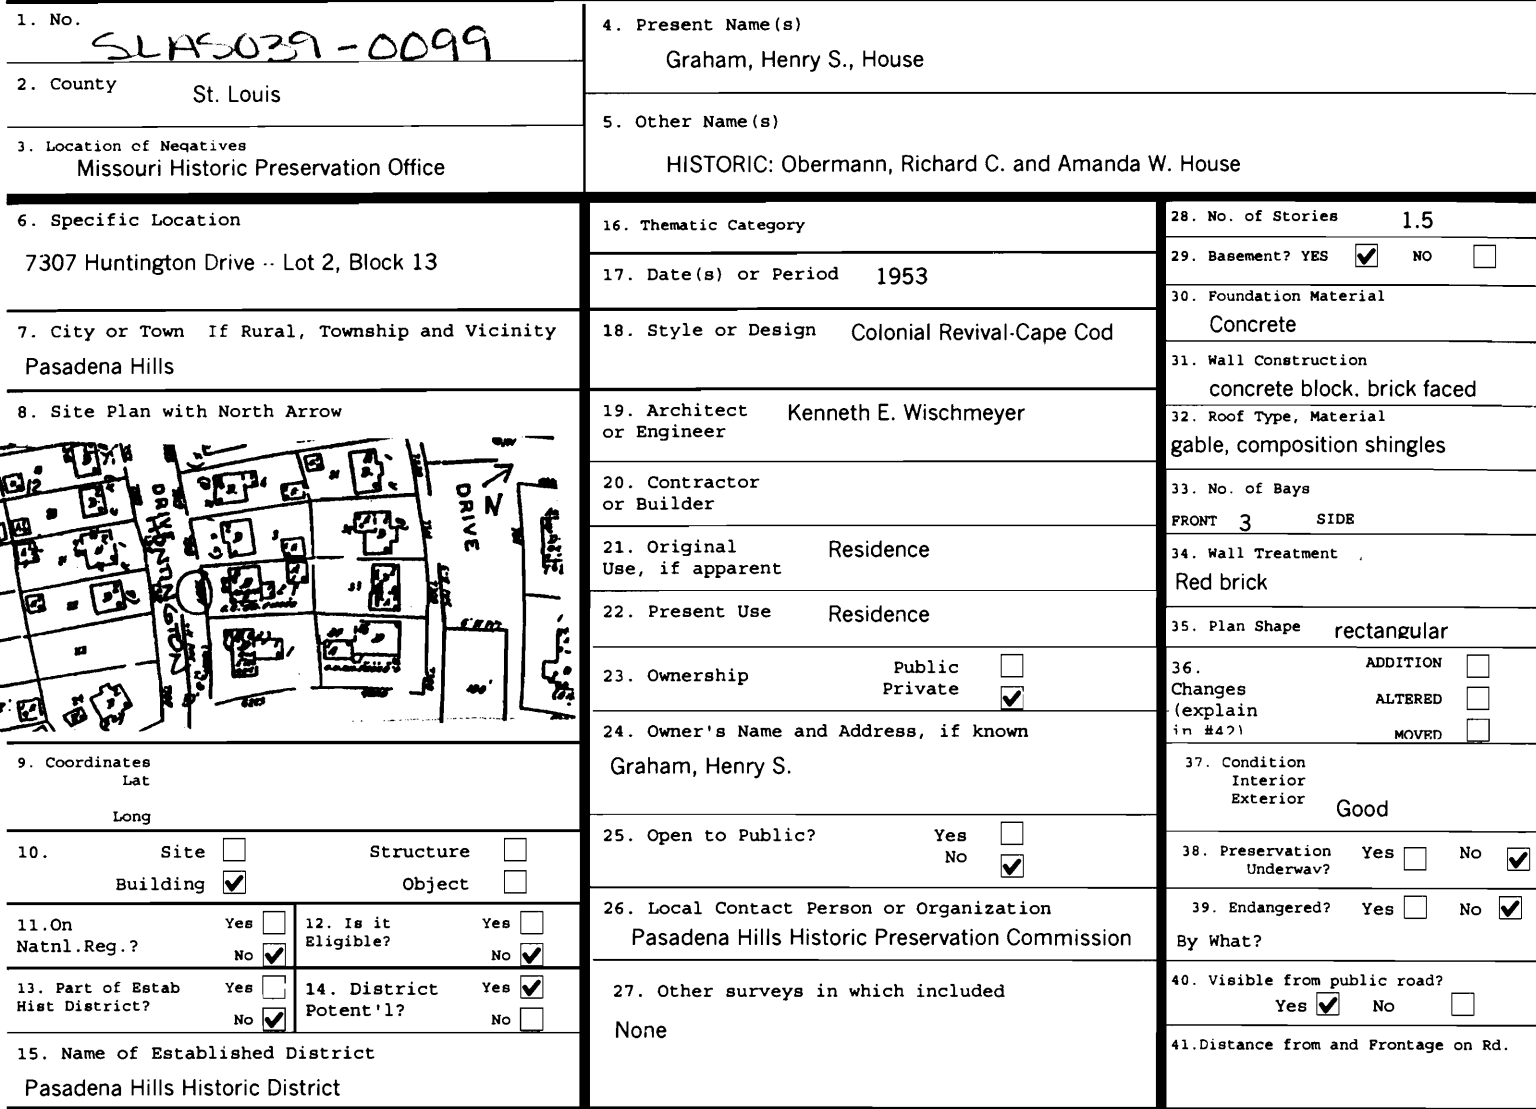 1. No.
SLAS039-0099
2. County
St. Louis
3. Location of Negatives
Missouri Historic Preservation Office
4. Present Name(s)
Graham, Henry S., House
5. Other Name(s)
HISTORIC: Obermann, Richard C. and Amanda W. House
6. Specific Location
7307 Huntington Drive -- Lot 2, Block 13
7. City or Town If Rural, Township and Vicinity
Pasadena Hills
8. Site Plan with North Arrow
DRIVE
HUNTINGTON
DRIVE
N
9. Coordinates
Lat
Long
10. Site Structure
Building ✔ Object
11.On Yes
Natnl.Reg.?
No ✔
12. Is it Yes
Eligible?
No ✔
13. Part of Estab Yes
Hist District?
No ✔
14. District Yes ✔
Potent'l?
No
15. Name of Established District
Pasadena Hills Historic District
16. Thematic Category
17. Date(s) or Period 1953
18. Style or Design Colonial Revival-Cape Cod
19. Architect Kenneth E. Wischmeyer
or Engineer
20. Contractor
or Builder
21. Original Residence
Use, if apparent
22. Present Use Residence
23. Ownership Public
Private ✔
24. Owner's Name and Address, if known
Graham, Henry S.
25. Open to Public? Yes
No ✔
26. Local Contact Person or Organization
Pasadena Hills Historic Preservation Commission
27. Other surveys in which included
None
28. No. of Stories 1.5
29. Basement? YES ✔ NO
30. Foundation Material
Concrete
31. Wall Construction
concrete block. brick faced
32. Roof Type, Material
gable, composition shingles
33. No. of Bays
FRONT 3 SIDE
34. Wall Treatment
Red brick
35. Plan Shape rectangular
36. ADDITION
Changes
(explain ALTERED
in #42) MOVED
37. Condition
Interior
Exterior Good
38. Preservation Yes No ✔
Underway?
39. Endangered? Yes No ✔
By What?
40. Visible from public road?
Yes ✔ No
41.Distance from and Frontage on Rd.